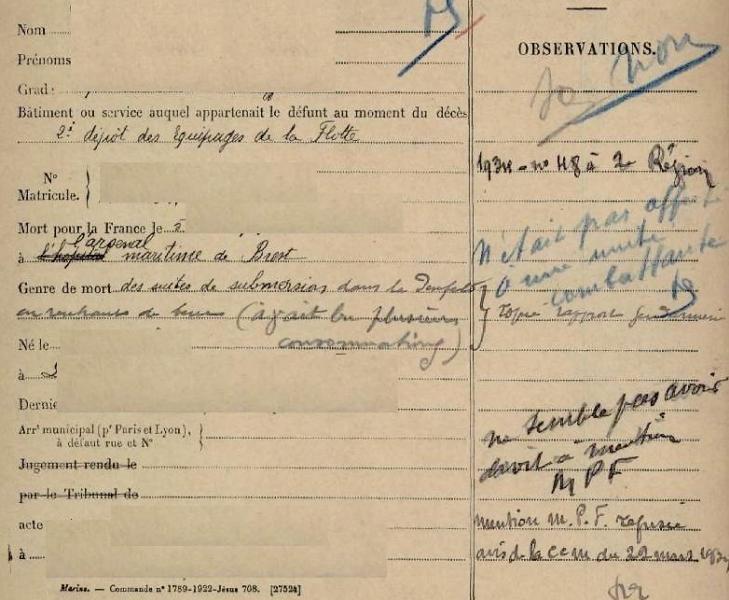 Nom
Prénoms
Grade
Bâtiment ou service auquel appartenait le défunt au moment du décès
2e dépôt des Equipages de la Flotte
N°
Matricule.
Mort pour la France le
l'arsenal
à l'hopital maritime de Brest
Genre de mort des suites de submersion dans la Penfeld
en rentrant de (avait bu plusieurs
consommations)
Né le
à
Dernie
Arrt municipal (pr Paris et Lyon),
à défaut rue et N°
Jugement rendu le
par le Tribunal de
acte
à
Marine. — Commande n° 1789-1922-Jésus 708. [27524]
OBSERVATIONS.
non
1934 - n° 48 à 2e Région
N'était pas affecté
à une unité
combattante
rapport gendarmerie
ne semble pas avoir
droit à mention
M P F
mention M.P.F. refusée
avis de la du 22 mars 193